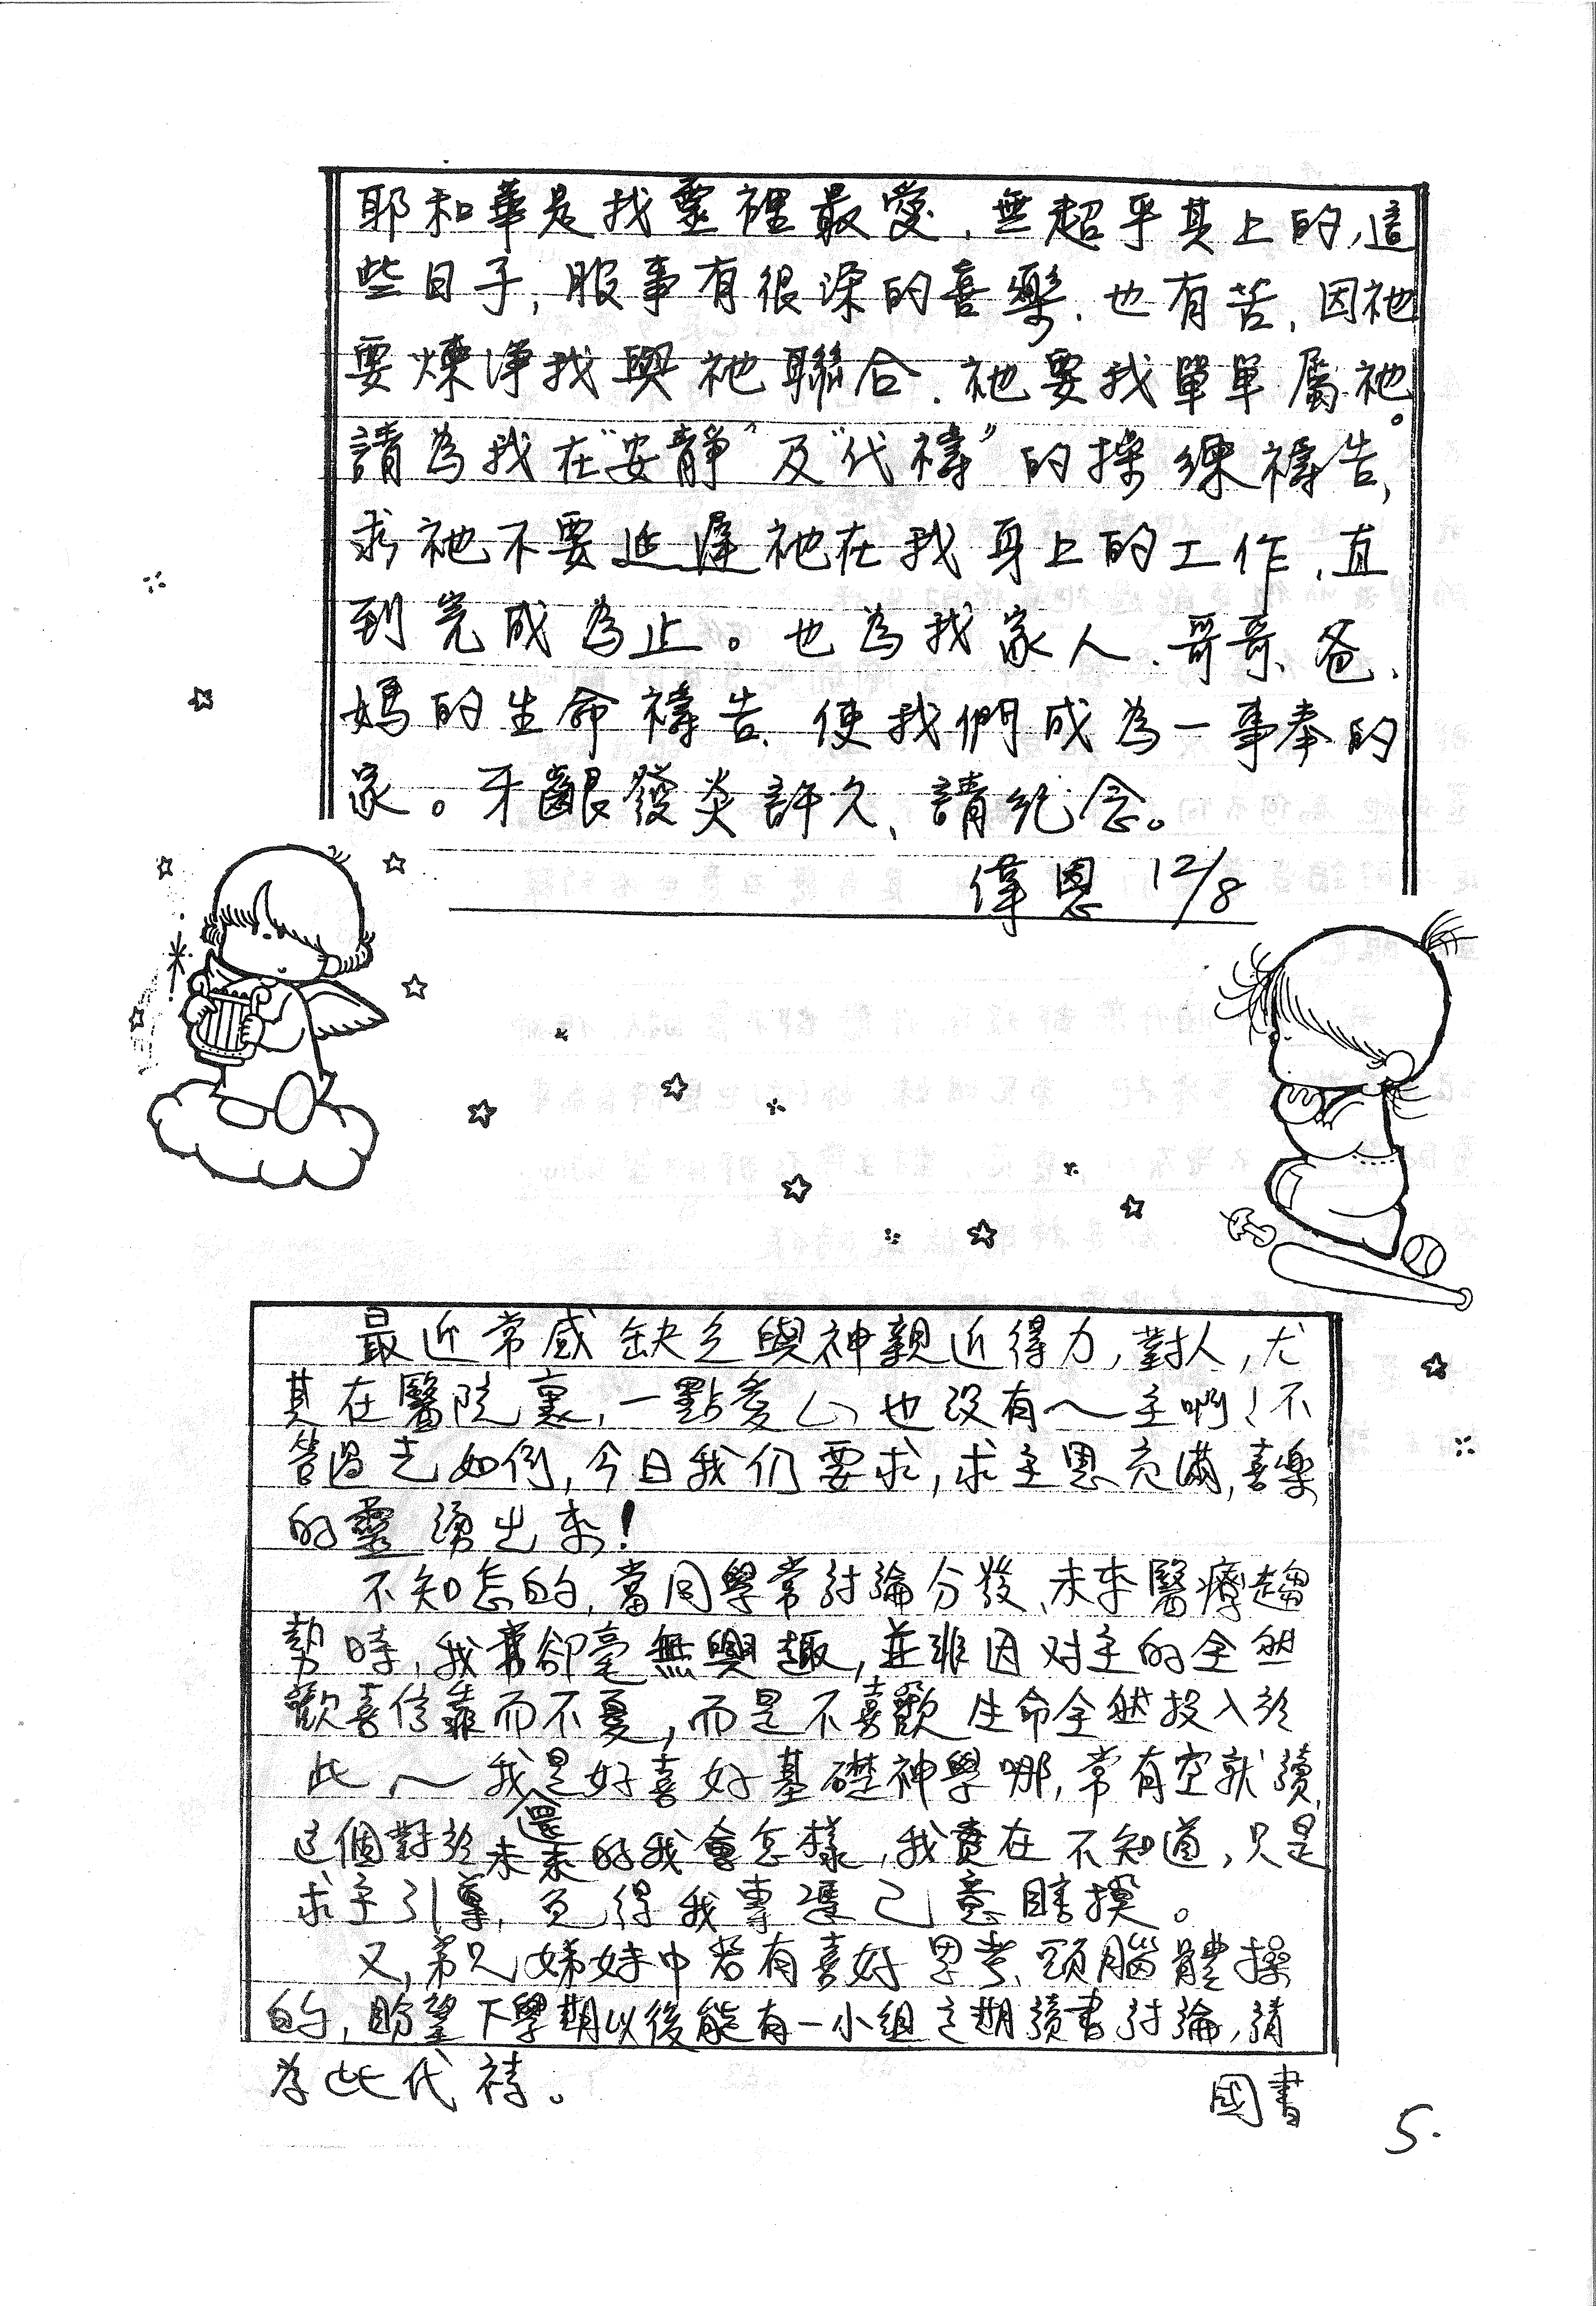 耶和華是我靈裡最愛、無超乎其上的，這
些日子，服事有很深的喜樂、也有苦，因祂
要煉淨我與祂聯合、祂要我單單屬祂。
請為我在"安靜"及"代禱"的操練禱告，
求祂不要延遲祂在我身上的工作、直
到完成為止。也為我家人、哥哥、爸、
媽的生命禱告、使我們成為一事奉的
家。牙齦發炎許久、請紀念。
偉恩 12/8
最近常感缺乏與神親近得力，對人，尤
其在醫院裏，一點愛心也没有～主啊！不
管過去如何，今日我们要求，求主恩充滿，喜樂
的靈湧出來！
不知怎的，當同學常討論分發、未來醫療趨
勢時，我常卻毫無興趣，並非因对主的全然
歡喜信靠而不憂，而是不喜歡生命全然投入於
此～我是好喜好基礎神學哪，常有空就讀，
這個對於還未來的我會怎樣，我實在不知道，只是
求主引導，免得我專憑己意瞎摸。
又，弟兄姊妹中若有喜好思考、頭腦體操
的，盼望下學期以後能有一小組定期讀書討論，請
為此代禱。
國書
5.